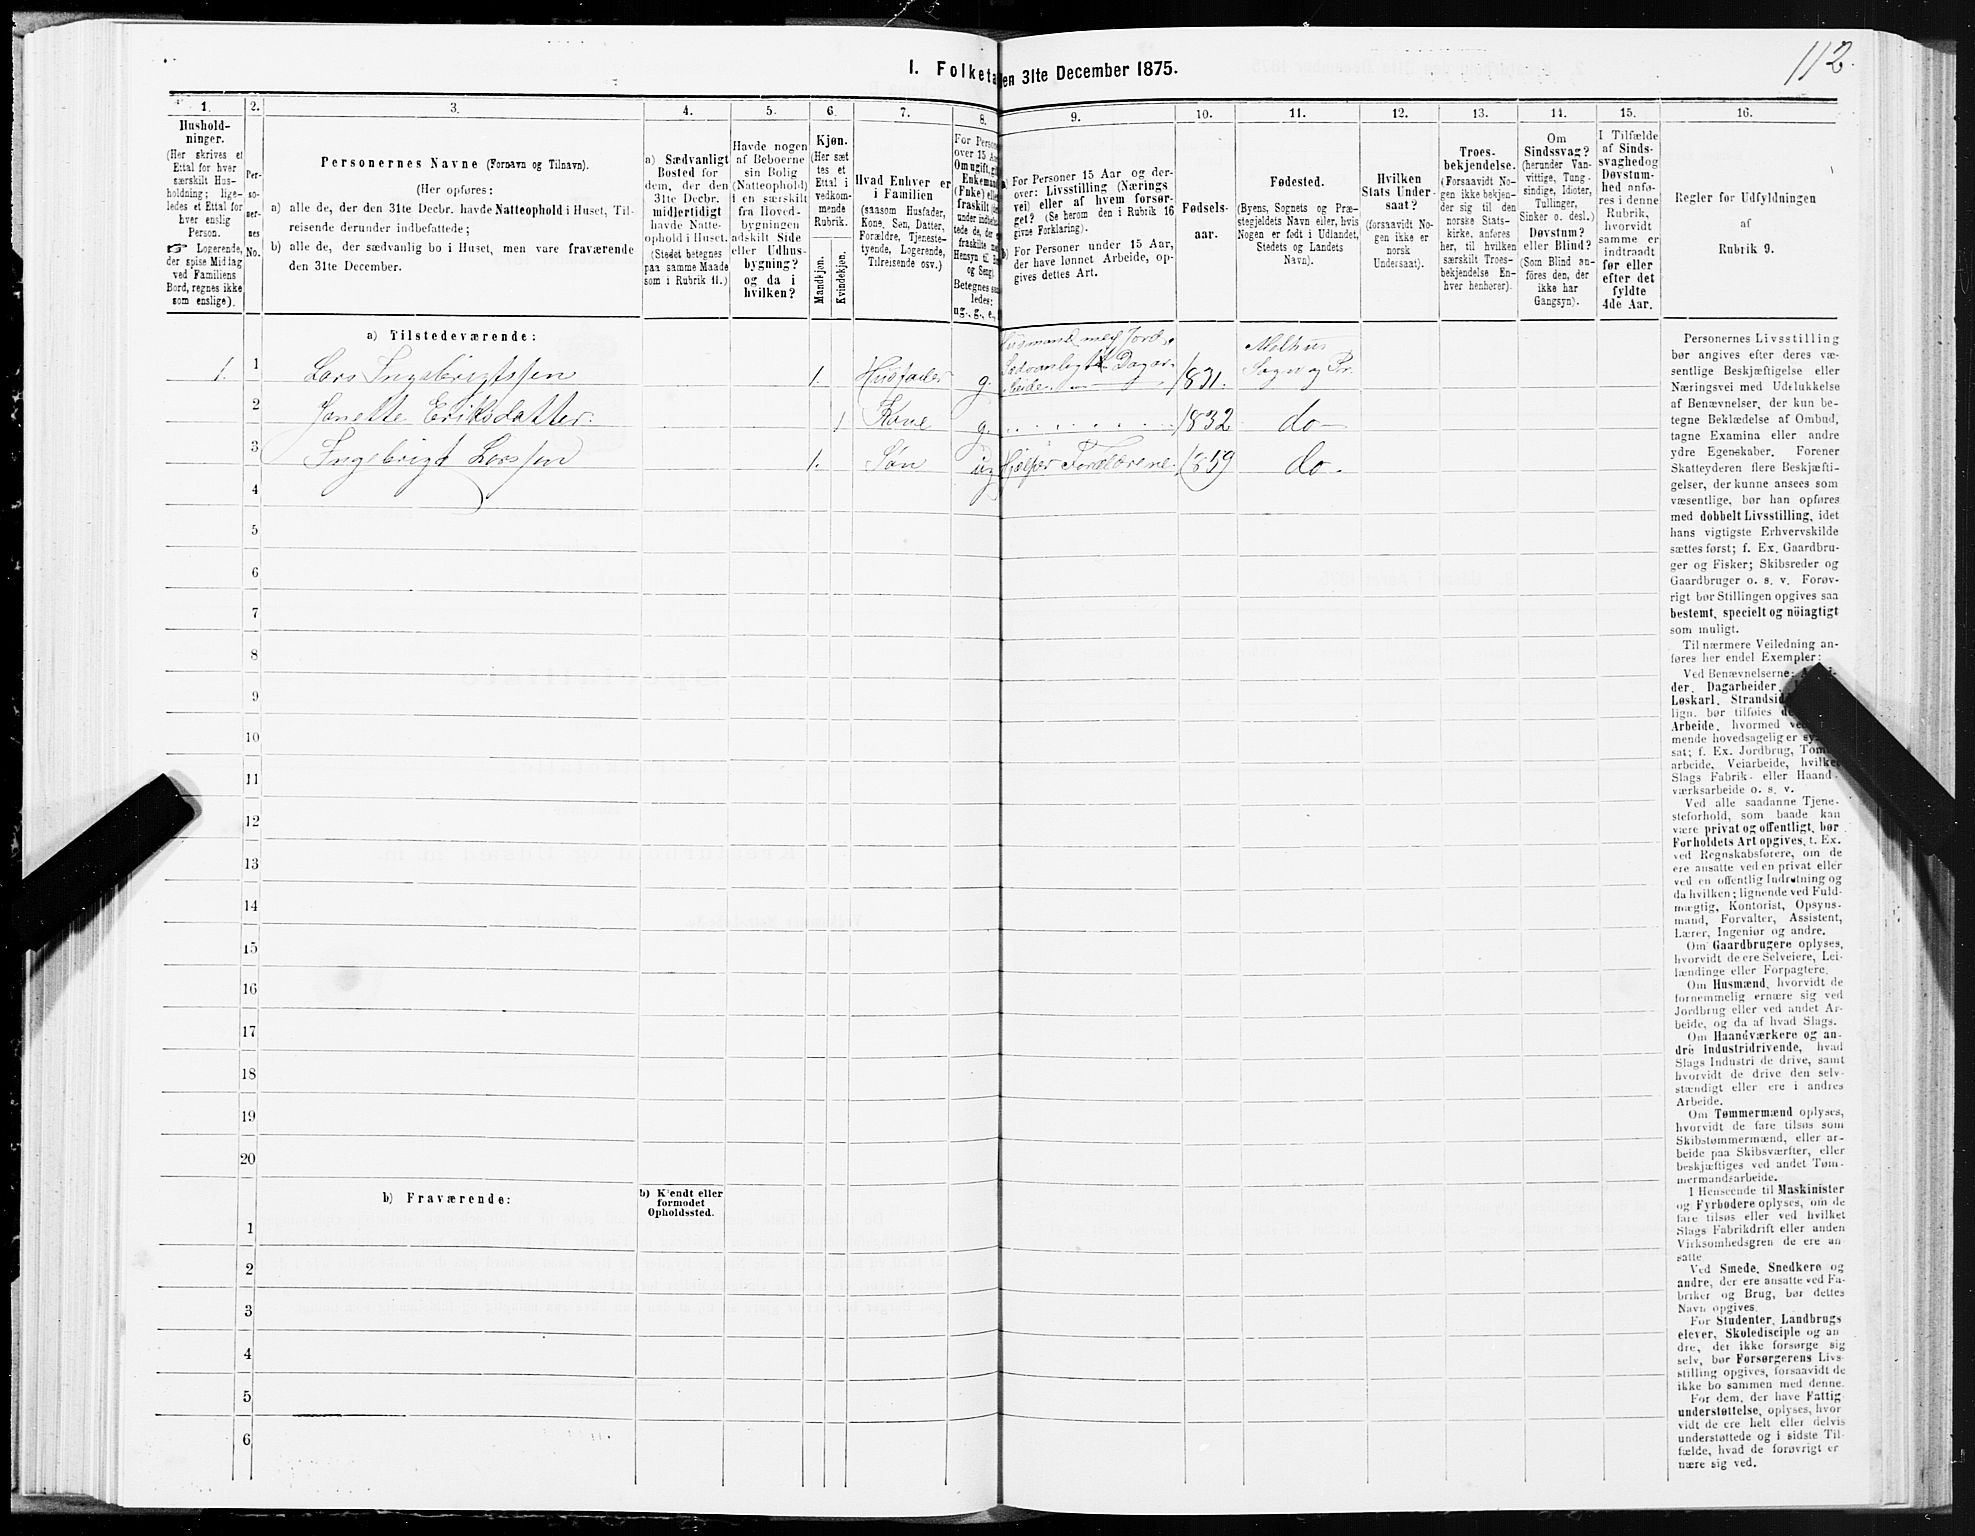 112.
I. Folketa
en 31te December 1875.
1.
2.
3.
4.
5.
6.
7.
8.
9.
10.
11.
12.
13.
14.
15.
16.
Hushold-
ninger.
(Her skrives et
Ettal for hver
særskilt Hus-
holdning; lige-
ledes et Ettal for
hver enslig
Person.
☞ Logerende,
der spise Middag
ved Familiens
Bord, regnes ikke
som enslige).
Per-
so-
ner-
nes
No.
Personernes Navne (Fornavn og Tilnavn).
(Her opføres:
a) alle de, der den 31te Decbr. havde Natteophold i Huset, Til-
reisende derunder indbefattede;
b) alle de, der sædvanlig bo i Huset, men vare fraværende
den 31te December.
a) Sædvanligt
Bosted for
dem, der den
31te Decbr.
midlertidigt
havde Natte-
ophold i Huset.
(Stedet betegnes
paa samme Maade
som i Rubrik 11.)
Havde nogen
af Beboerne
sin Bolig
(Natteophold)
i en særskilt
fra Hoved-
bygningen
adskilt Side
eller Udhus-
bygning?
og da i
hvilken?
Kjøn.
(Her sæt
tes et
Ettal i
vedkom-
mende
Rubrik.
Mandkjøn.
Kvindekjøn.
Hvad Enhver er
i Familien
(saasom Husfader,
Kone, Søn, Datter,
Forældre, Tjeneste-
tyende, Logerende,
Tilreisende osv.)
For Person
over 15 Aa
Om ugift, gif
Enkemand
(Enke) elle
fraskilt (he
under indbefat
tede de, der e
fraskilte med
Hensyn til B
og Seng).
Betegnes saa
ledes:
ug., g., e.,
a) For Personer 15 Aar og der-
over: Livsstilling (Nærings
vei) eller af hvem forsør-
get? (Se herom den i Rubrik 16
givne Forklaring).
b) For Personer under 15 Aar,
der have lønnet Arbeide, op-
gives dettes Art.
Fødsels-
aar.
Fødested.
(Byens, Sognets og Præ-
stegjeldets Navn eller, hvis
Nogen er født i Udlandet,
Stedets og Landets
Navn).
Hvilken
Stats Under-
saat?
(forsaavidt No-
gen ikke er
norsk
Undersaat).
Troes-
bekjendelse.
(Forsaavidt No-
gen ikke bekjen-
der sig til den
norske Stats-
kirke, anføres
her, til hvilken
særskilt Troes-
bekjendelse En-
hver henhører).
Om
Sindssvag?
(herunder Van-
vittige, Tung-
sindige, Idioter,
Tullinger,
Sinker o. desl.)
Døvstum?
eller Blind?
(Som Blind an-
føres den, der
ikke har
Gangsyn).
I Tilfælde
af Sinds-
svaghed og
Døvstum-
hed anfø-
res i denne
Rubrik,
hvorvidt
samme er
indtraadt
før eller
efter det
fyldte
4de Aar.
Regler for Udfyldningen
af
Rubrik 9.
a) Tilstedeværende:
1. 1 Lars Ingebrigtssen 1. Husfader g. Husmand med Jord.
Sædvanligt Dagar-
beide. 1831. Melhus
Sogn og Pr.
2 Jonette Eriksdatter. 1 Kone g. 1832 do
3 Ingebrigt Larssen 1. Søn ug Hjelper Forældrene. 1859 do.
4
5
6
7
8
9
10
11
12
13
14
15
16
17
18
19
20
b) Fraværende:
b) Kjendt eller
formodet
Opholdssted.
1
2
3
4
5
6
Personernes Livsstilling
bør angives efter deres væ-
sentlige Beskjæftigelse eller
Næringsvei med Udelukkelse
af Benævnelser, der kun be-
tegne Beklædelse af Ombud,
tagne Examina eller andre
ydre Egenskaber. Forener
Skatteyderen flere Beskjæfti-
gelser, der kunne ansees som
væsentlige, bør han opføres
med dobbelt Livsstilling, idet
hans vigtigste Erhvervskilde
sættes først; f. Ex. Gaardbru-
ger og Fisker; Skibsreder og
Gaardbruger o. s. v. Forøv-
rigt bør Stillingen opgives saa
bestemt, specielt og nöiagtigt
som muligt.
Til nærmere Veiledning an-
føres her endel Exempler:
Ved Benævnelserne:
der, Dagarbeider,
Løskarl, Strandsid
lign. bør tilføies
Arbeide, hvormed
mende hovedsagelig er
sat; f. Ex. Jordbrug, Tom
arbeide, Veiarbeide, hvilke
Slags Fabrik- eller Haand-
værksarbeide o. s. v.
Ved alle saadanne Tjene-
steforhold, som baade kan
være privat og offentligt, bør
Forholdets Art opgives, t. Ex.
ved Regnskabsførere, om de
ere ansatte ved en privat eller
ved en offentlig Indretning og
da hvilken; lignende ved Fuld-
mægtig, Kontorist, Opsyns-
mand, Forvalter, Assistent,
Lærer, Ingeniør og andre.
Om Gaardbrugere oplyses,
hvorvidt de ere Selveiere, Lei-
lændinge eller Forpagtere.
Om Husmænd, hvorvidt de
fornemmelig ernære sig ved
Jordbrug eller ved andet Ar-
beide, og da af hvad Slags.
Om Haandværkere og an-
dre Industridrivende, hvad
Slags Industri de drive, samt
hvorvidt de drive den selv-
stændigt eller ere i andres
Arbeide.
Om Tømmermænd oplyses,
hvorvidt de fare tilsøs som
Skibstømmermænd, eller ar-
beide paa Skibsværfter, eller
beskjæftiges ved andet Tøm-
mermandsarbeide.
I Henseende til Maskinister
og Fyrbødere oplyses, om de
fare tilsøs eller ved hvilket
Slags Fabrikdrift eller anden
Virksomhedsgren de ere an-
satte
Ved Smede, Snedkere og
andre, der ere ansatte ved Fa-
briker og Brug, bør dettes
Navn opgives.
For Studenter, Landbrugs
elever, Skoledisciple og an
dre, der ikke forsørge sig
selv, bør Forsørgerens Livs-
stilling opgives, forsaavidt de
ikke bo sammen med denne.
For dem, der have Fattig
understøttelse, oplyses, hvor
vidt de ere helt eller delvis
understøttede og i sidste Til-
fælde, hvad de forøvrigt er
nære sig ved.